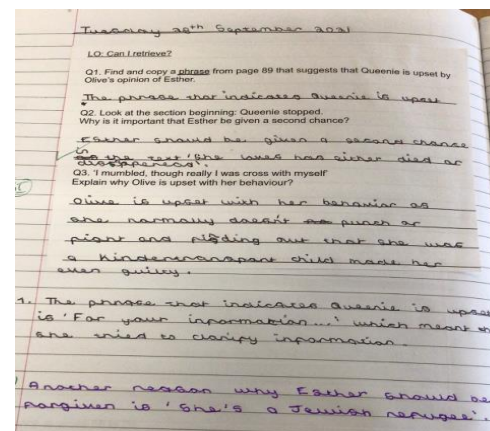 Tuesday 28th September 2021
LO: Can I retrieve?
Q1. Find and copy a phrase from page 89 that suggests that Queenie is upset by
Olive's opinion of Esther.
The phrase that indicates Queenie is upset
Q2. Look at the section beginning: Queenie stopped.
Why is it important that Esther be given a second chance?
Esther should be given a second chance
the text 'She loves has either died or
disappeared'.
Q3. 'I mumbled, though really I was cross with myself'
Explain why Olive is upset with her behaviour?
Olive is upset with her behavior as
she normally doesn't punch or
fight and finding out that she was
a kindertransport child made her
even guilty.
1. The phrase that indicates Queenie is upset
is 'For your information...' which meant th
she tried to clarify information.
Another reason why Esther should be
forgiven is 'She's a Jewish refugee'.